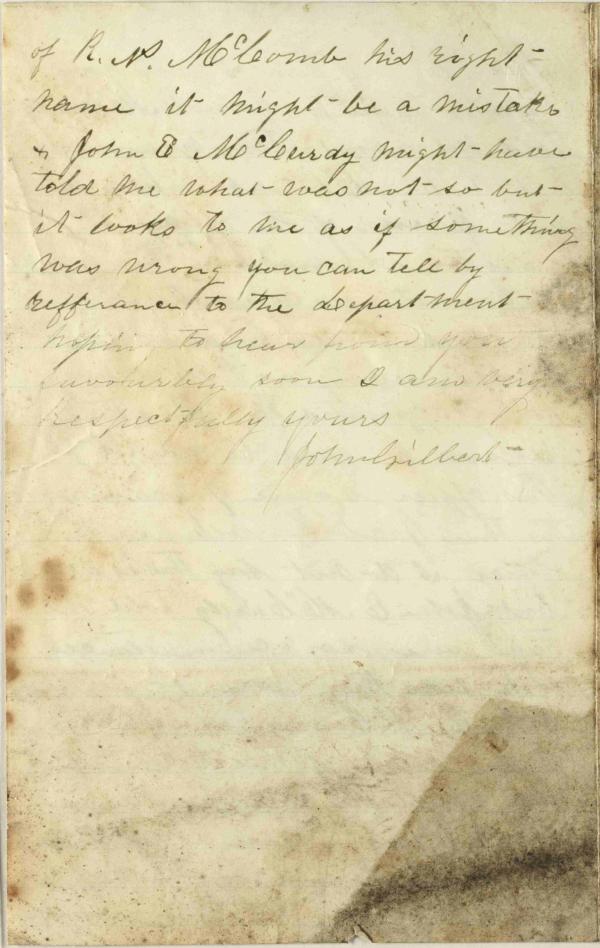 of R. N. McComb his right
name it might be a mistake
& John E McCurdy might have
told me what was not so but
it looks to me as if something
was wrong you can tell by
refferance to the department
hoping to hear from you
favourbly soon I am very
Respectfully yours
John Gilbert